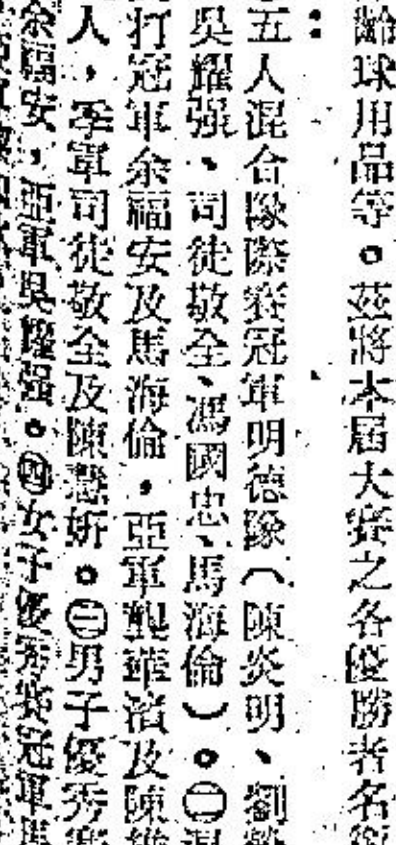 齡球用品等。茲將本屆大賽之各優勝者名
：
五人混合隊際賽冠軍明德隊（陳炎明、劉
吳耀强、司徒敬全、馮國忠、馬海倫）。㊁混
打冠軍余福安及馬海倫，亞軍龔華渚及陳
人，季軍司徒敬全及陳慧妍。㊂男子優秀賽
余福安，亞軍吳耀强。㊃女子優秀賽冠軍馬